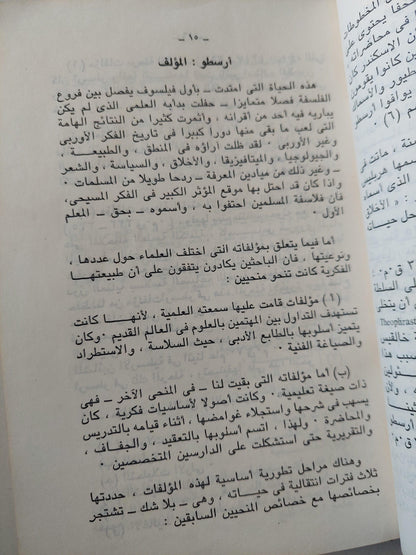 — ١٥ —
أرسطو : المؤلف
هذه الحياة التى امتدت — بأول فيلسوف يفصل بين فروع
الفلسفة فصلا متمايزا — حفلت بدأبه العلمى الذى لم يكن
يباريه فيه احد من اقرانه ، وأثمرت كثيرا من النتائج الهامة
التى لعب ما بقى منها دورا كبيرا فى تاريخ الفكر الأوربى
وغير الأوربى . لقد ظلت آراؤه فى المنطق ، والطبيعة ،
والجيولوجياء والميتافيزيقا ، والأخلاق ، والسياسة ، والشعر
— وغير ذلك من ميادين المعرفة — ردحا طويلا من المسلمات .
واذا كان قد احتل بها موقع المؤثر الكبير فى الفكر المسيحى ،
فان فلاسفة المسلمين احتفوا به ، وأسموه — بحق — المعلم
الأول .
أما فيما يتعلق بمؤلفاته التى اختلف العلماء حول عددها ،
ونوعيتها ، فان الباحثين يكادون يتفقون على أن طبيعتها
الفكرية كانت تنحو منحيين :
(١) مؤلفات قامت عليها سمعته العلمية ، لأنها كانت
تستهدف التداول بين المهتمين بالعلوم فى العالم القديم . وكان
يتميز أسلوبها بالطابع الأدبى ، حيث السلاسة ، والاستطراد
والصياغة الفنية .
(ب) أما مؤلفاته التى بقيت لنا — فى المنحى الآخر — فهى
ذات صبغة تعليمية . وكانت أصولا لأساسيات فكرية ، كان
يسهب فى شرحها واستجلاء غوامضها ، أثناء قيامه بالتدريس
والمحاضرة . ولهذا ، اتسم أسلوبها بالتعقيد ، والجفاف ،
والتقريرية حتى استشكلت على الدارسين المتخصصين .
وهناك مراحل تطورية أساسية لهذه المؤلفات ، حددتها
ثلاث فترات انتقالية فى حياته ، وهى — بلا شك — تشتجر
بخصائصها مع خصائص المنحيين السابقين :
المخطوطات
يحتوى على
فى محاضراته
ين كانوا يقومون
(٦) .
، ماتت فى
« الأخلاق
٣ ق ٠ م ٠
Theophrast